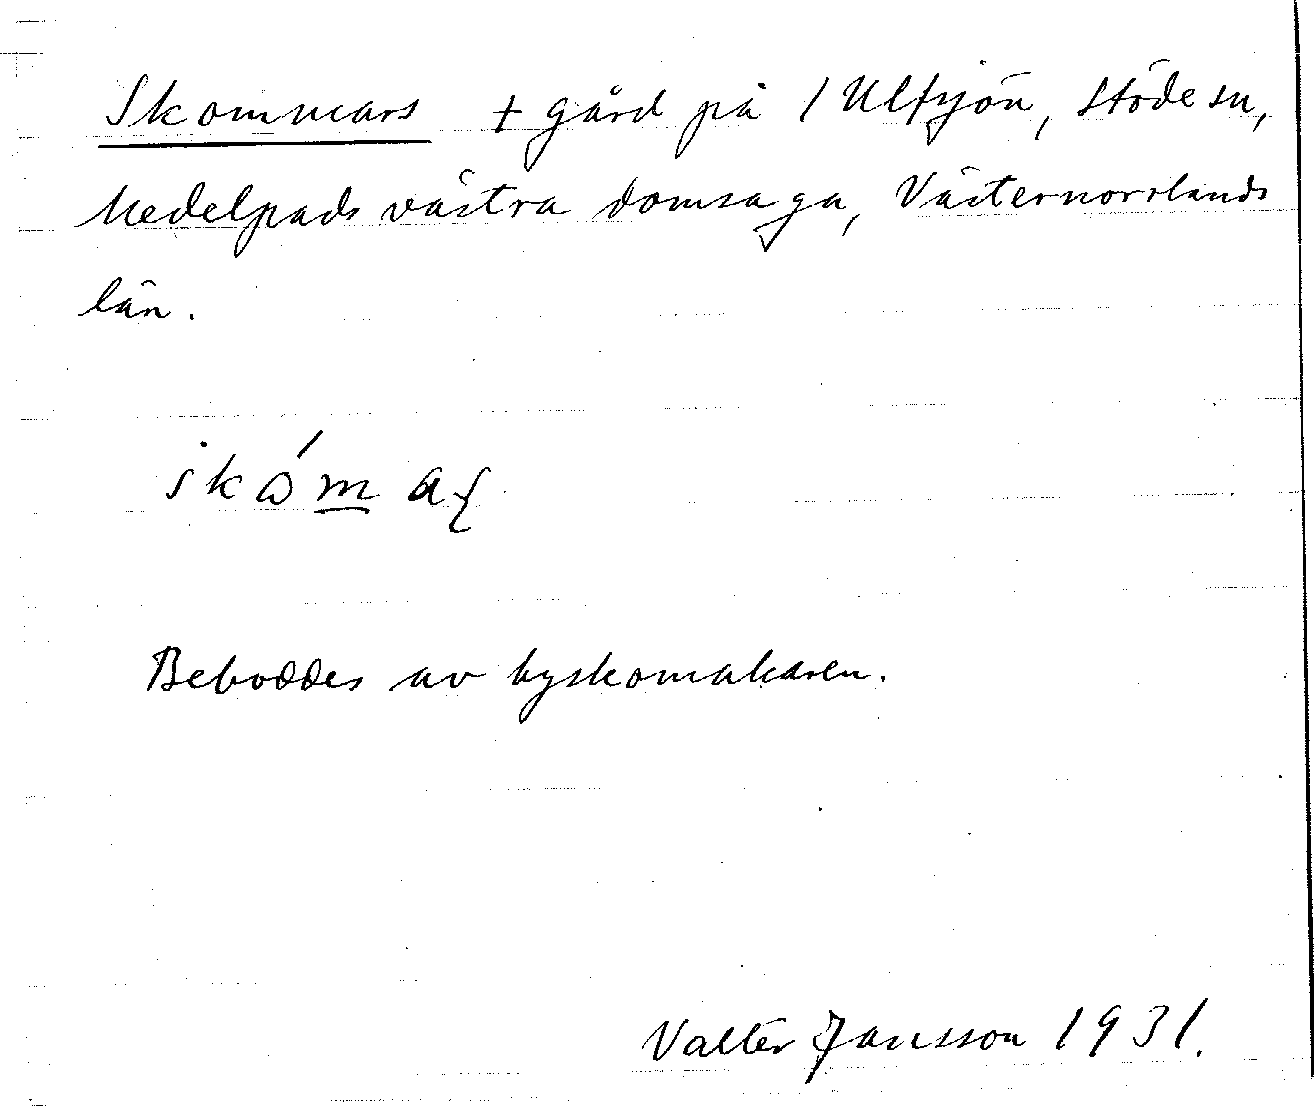 Skommars + gård på 1 Ulfsjön, Stöde sn,
Medelpads västra domsaga, Västernorrlands
län.
Beboddes av byskomakaren.
Valter Jansson 1931.